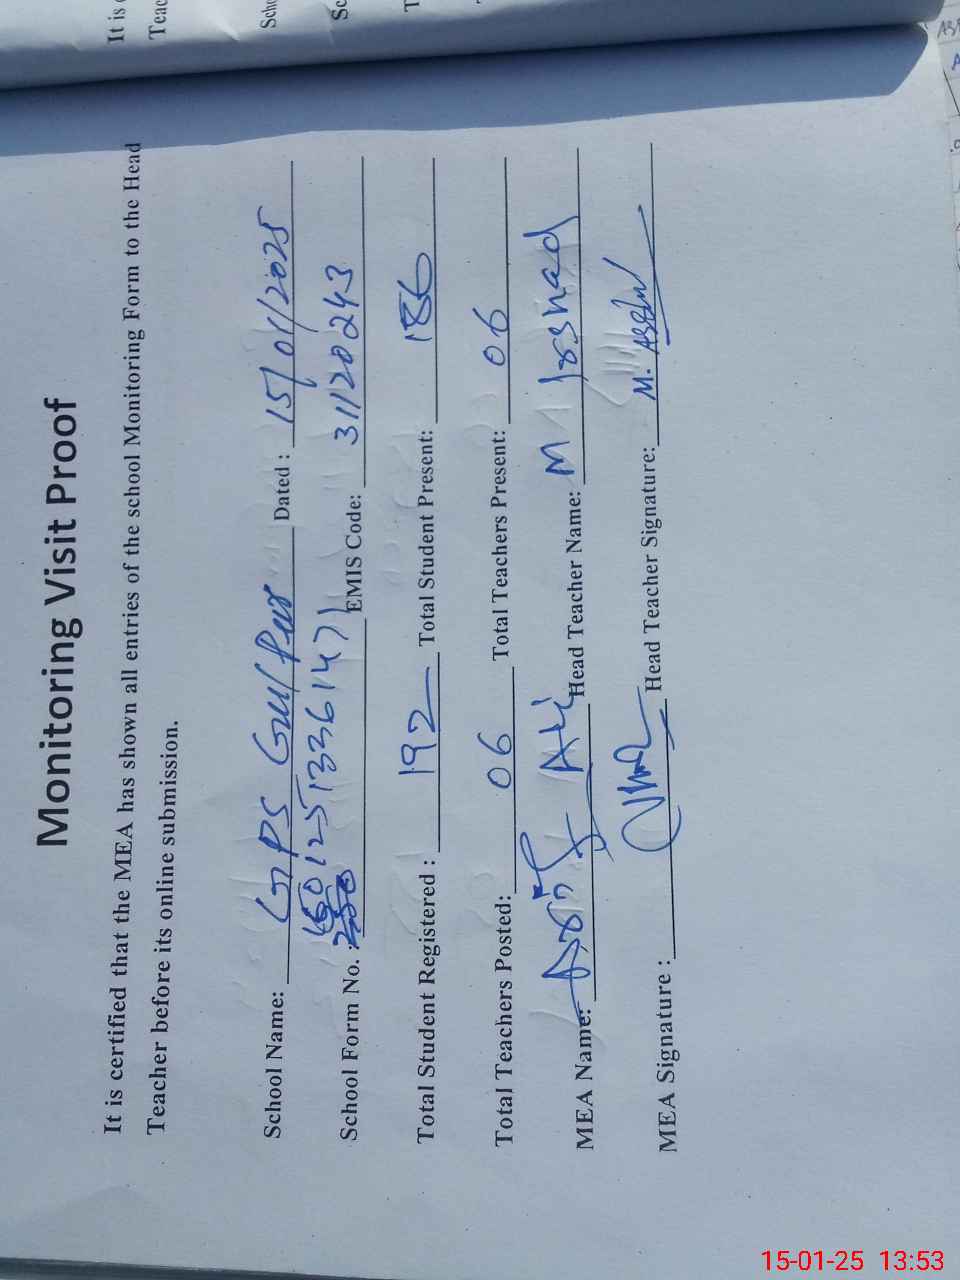 Monitoring Visit Proof
It is certified that the MEA has shown all entries of the school Monitoring Form to the Head
Teacher before its online submission.
School Name: GPS Gulpur Dated : 15/01/2025
School Form No. : 12513361471 EMIS Code: 31120243
Total Student Registered : 192 Total Student Present: 186
Total Teachers Posted: 06 Total Teachers Present: 06
MEA Name: Ali Head Teacher Name: M Irshad
MEA Signature : Head Teacher Signature: M.
15-01-25 13:53